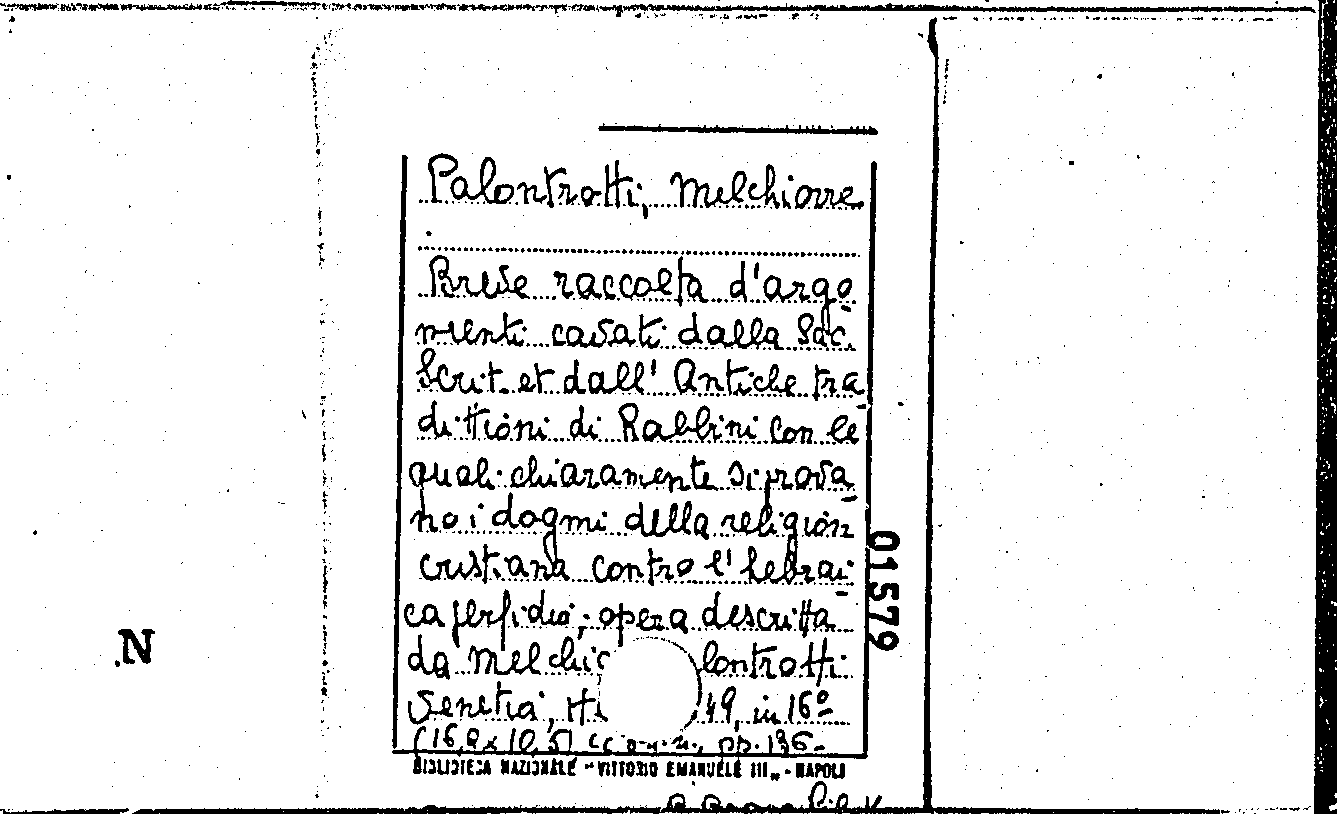 Palontrotti, Melchiorre
Breve raccolta d'argo
menti cavati dalla Sac.
Scrit. et dall' Antiche tra
dittioni di Rabbini con le
quali chiaramente si prova
no i dogmi della religion
cristiana contro l'hebrai
ca perfidia; opera descritta
da Melchio lontrotti
Venetia, 49, in 16º
(16,8x10,5) pp. 136
BIBLIOTECA NAZIONALE "VITTORIO EMANUELE III" - NAPOLI
01579
N